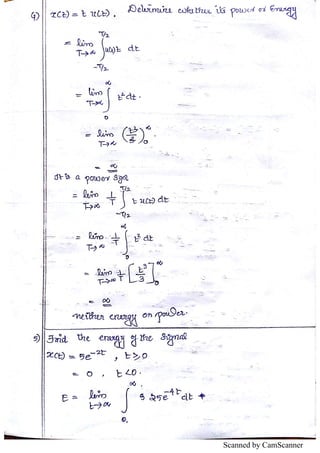 4) x(t) = t u(t). Determine whether its power or Energy
= lim T→∞ ∫ -T/2 T/2 u(t)t dt
= lim T→∞ ∫ 0 ∞ t² dt.
= lim T→∞ (t³/3) 0 ∞
= ∞
It is a power Sgnl
= lim T→∞ 1/T ∫ -T/2 T/2 t u(t) dt
= lim T→∞ 1/T ∫ 0 ∞ t² dt
= lim T→∞ 1/T [t³/3] 0 ∞
= ∞
neither energy on power.
5) Find the energy of the signal
x(t) = 5e^-2t , t ≥ 0
= 0 , t < 0.
E = lim t→∞ ∫ 0 ∞ 25e^-4t dt +
Scanned by CamScanner